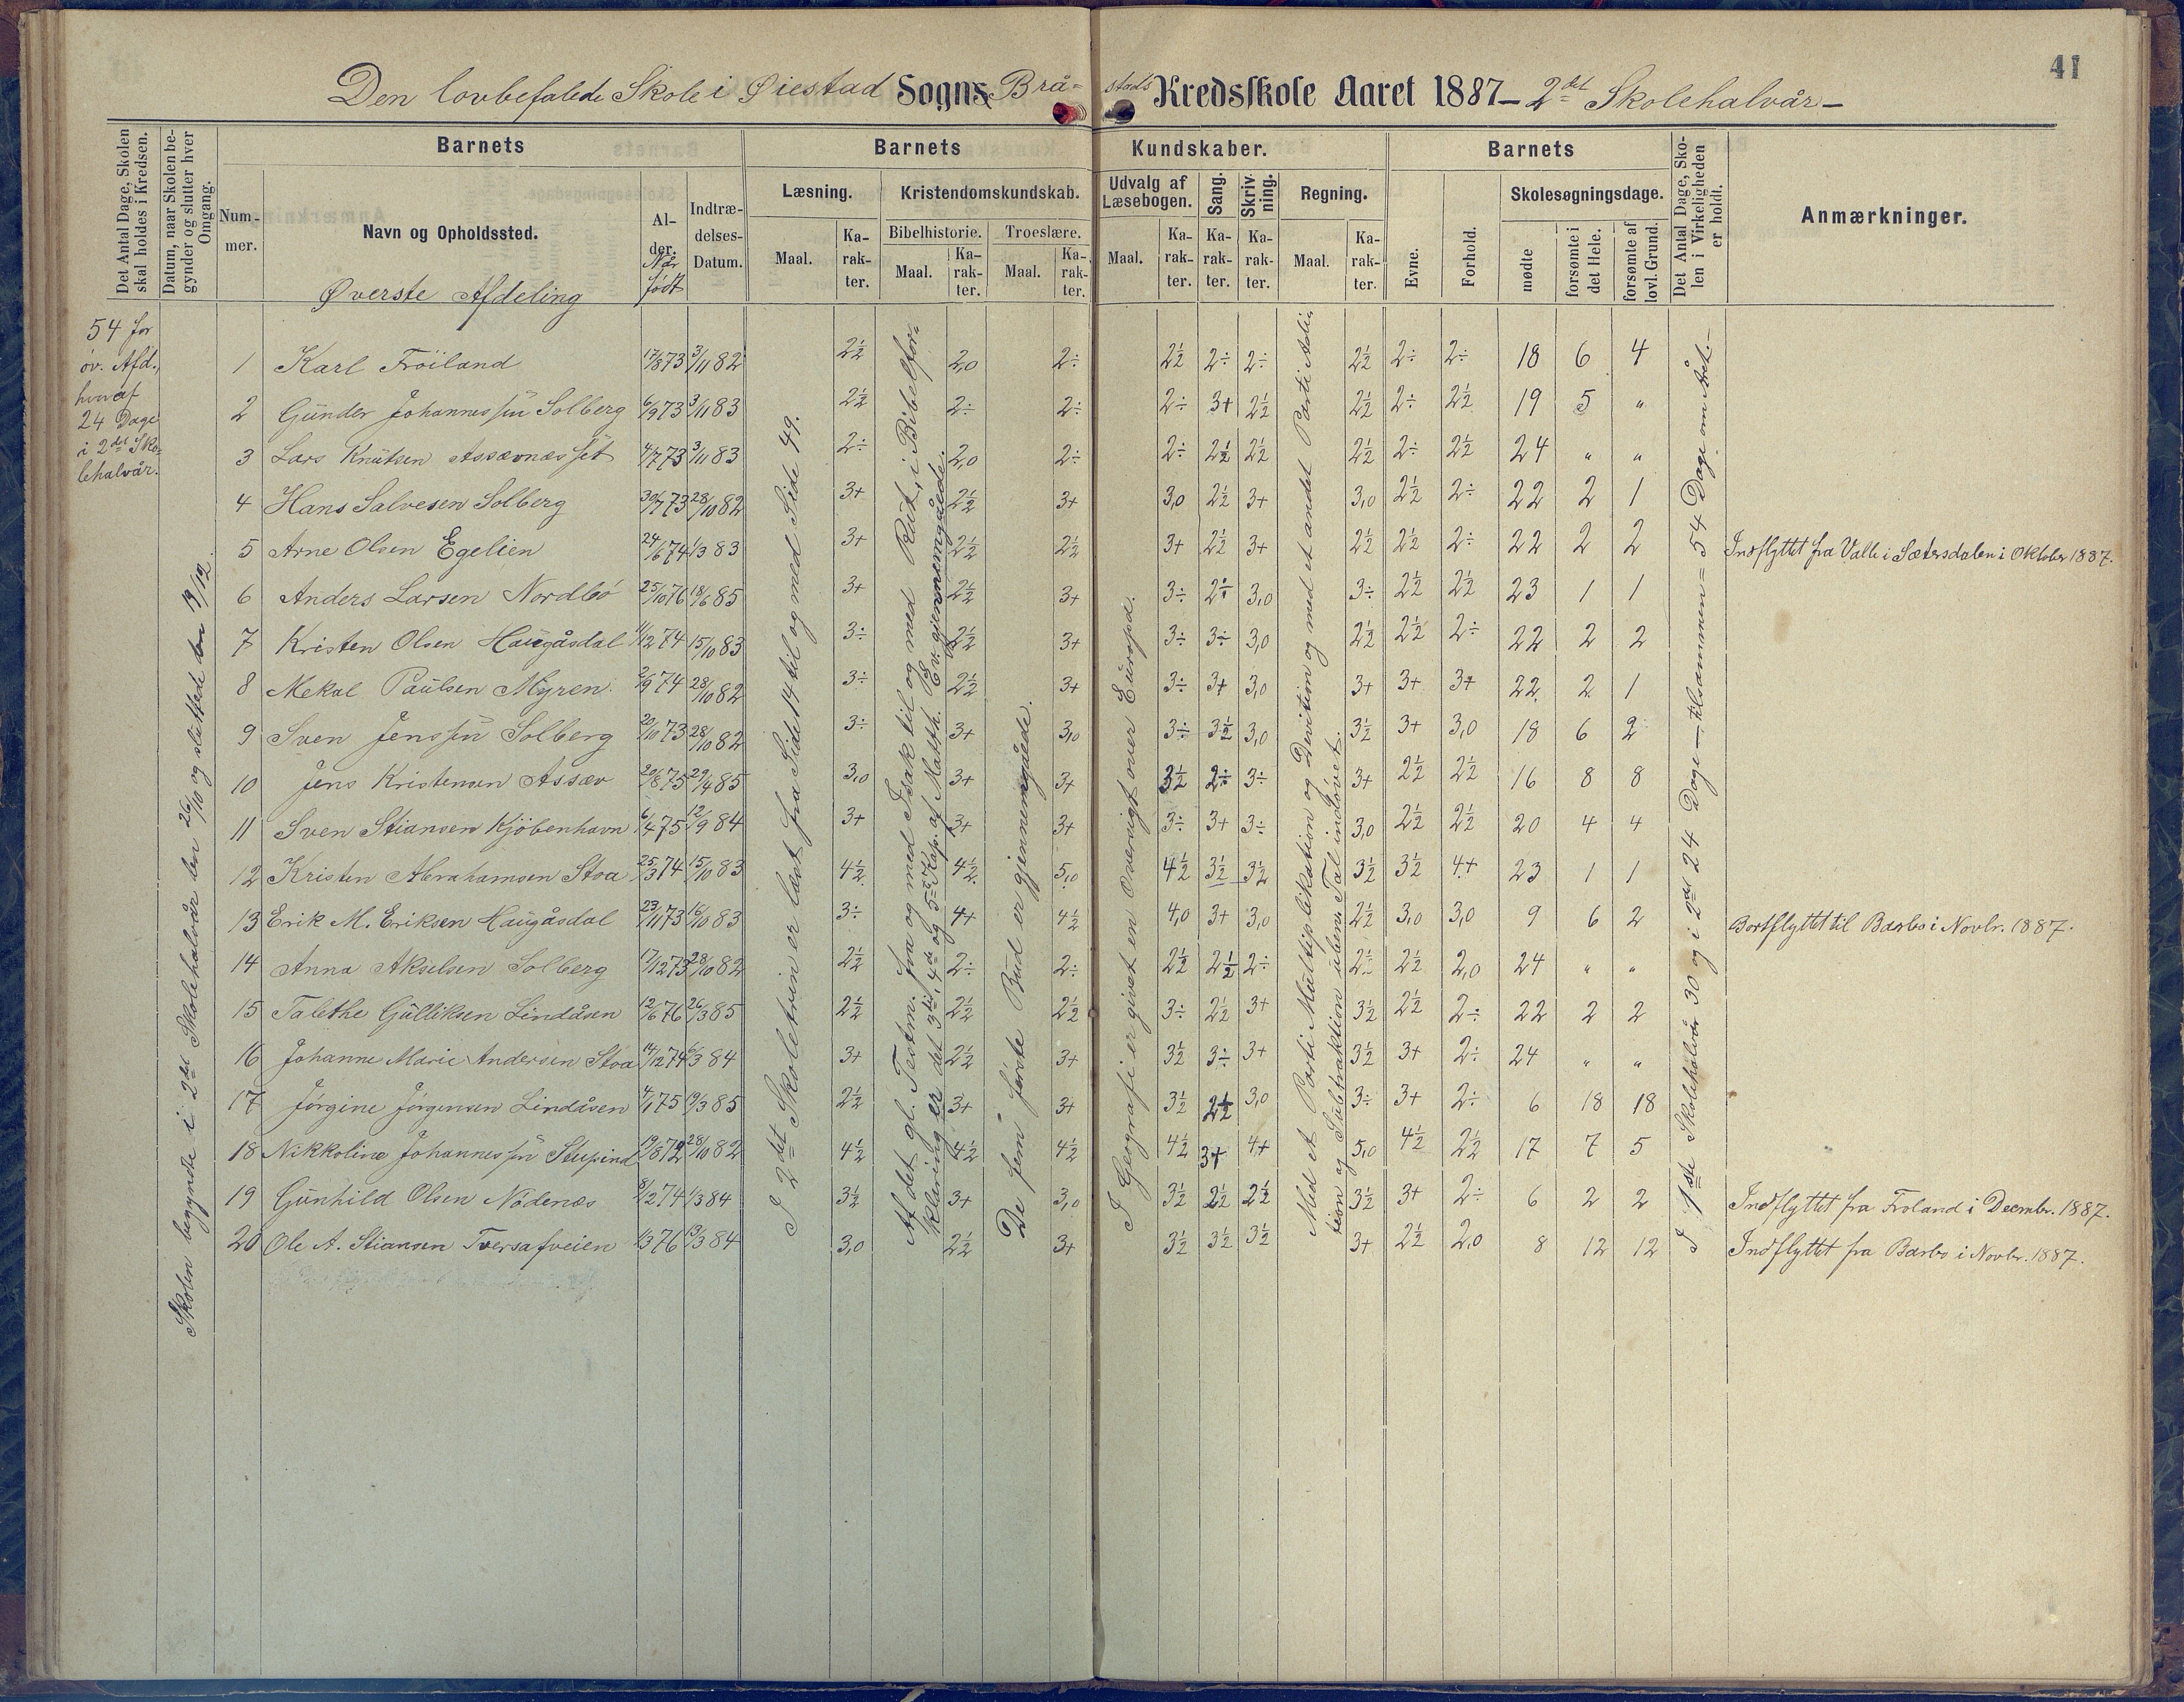 41
Den lovbefalede Skole i Øiestad Sogns Brå= stads Kredsskole Aaret 1887 – 2det Skolehalvår –
Det Antal Dage, Skolen skal holdes i Kredsen.
Datum, naar Skolen begynder og slutter hver Omgang.
Barnets
Num-mer.
Navn og Opholdssted.
Øverste Afdeling
Al-der. Når født
Indtræ-delses-Datum.
Barnets Kundskaber.
Læsning. Maal. Ka-rak-ter.
Kristendomskundskab.
Bibelhistorie. Maal. Ka-rak-ter.
Troeslære. Maal. Ka-rak-ter.
Udvalg af Læsebogen. Maal. Ka-rak-ter.
Sang. Ka-rak-ter.
Skriv-ning. Ka-rak-ter.
Regning. Maal. Ka-rak-ter.
Barnets
Evne.
Forhold.
Skolesøgningsdage.
mødte
forsømte i det Hele.
forsømte af lovl. Grund.
Det Antal Dage, Sko-len i Virkeligheden er holdt.
Anmærkninger.
54 for
øv. Afd.,
hvoraf
24 Dage
i 2det Sko-
lehalvår.
Skolen begynte i 2det Skolehalvår den 26/10 og sluttede den 19/12.
I 2det Skoletrin er læst fra Side 14 til og med Side 49.
Af det gl. Testm. fra og med Isak til og med Rut, i Bibelfor=
klaring er det 3die, 4de og 5te Kap. af Matth. Ev. gjennemgåede.
De fem første Bud er gjennemgåede.
I Geografi er givet en Oversigt over Europa.
Med et Parti Multiplikation og Division og med et andet Parti Addi=
tion og Subtraktion ubenv. Tal indøvet.
I 1ste Skolehalvår 30 og i 2det 24 Dage – tilsammen = 54 Dage om Året. –
1 Karl Fröiland 17/8 73 3/11 82 2½ 2,0 2÷ 2½ 2÷ 2÷ 2½ 2÷ 2÷ 18 6 4
2 Gunder Johannessøn Solberg 6/9 73 3/11 83 2½ 2÷ 2÷ 2÷ 3+ 2½ 2½ 2÷ 2½ 19 5 "
3 Lars Knutsen Assævnæsset 4/7 73 3/11 83 2÷ 2,0 2÷ 2÷ 2½ 2½ 2½ 2÷ 2½ 24 " "
4 Hans Salvesen Solberg 30/7 73 28/10 82 3+ 2½ 3+ 3,0 2½ 3+ 3,0 2½ 2÷ 22 2 1
5 Arne Olsen Egelien 24/6 74 1/3 83 3+ 2½ 2½ 3+ 2½ 3+ 2½ 2½ 2÷ 22 2 2 Indflyttet fra Valle i Sætersdalen i Oktober 1887.
6 Anders Larsen Nordbö 25/10 76 18/6 85 3+ 2½ 3+ 3÷ 2÷ 3,0 3÷ 2½ 2½ 23 1 1
7 Kristen Olsen Haugåsdal 11/12 74 15/10 83 3÷ 2½ 3+ 3÷ 3÷ 3,0 2½ 2½ 2÷ 22 2 2
8 Mekal Paulsen Myren 2/9 74 28/10 82 3÷ 2½ 3+ 3÷ 3+ 3,0 3+ 3+ 3+ 22 2 1
9 Sven Jenssøn Solberg 20/10 73 28/10 82 3÷ 3+ 3,0 3÷ 3½ 3,0 3½ 3+ 3,0 18 6 2
10 Jens Kristensen Assæv 20/8 75 29/4 85 3,0 3+ 3+ 3½ 2÷ 3÷ 3+ 2½ 2½ 16 8 8
11 Sven Stiansen Kjöbenhavn 6/4 75 12/9 84 3+ 3+ 3+ 3÷ 3+ 3÷ 3,0 2½ 2½ 20 4 4
12 Kristen Abrahamsen Stoa 25/3 74 15/10 83 4½ 4½ 5,0 4½ 3½ 3½ 3½ 3½ 4+ 23 1 1
13 Erik M. Eriksen Haugåsdal 23/11 73 16/10 83 3÷ 4+ 4½ 4,0 3+ 3,0 2½ 3,0 3,0 9 6 2 Bortflyttet til Barbo i Novbr. 1887.
14 Anna Akselsen Solberg 17/12 73 28/10 82 2½ 2÷ 2÷ 2½ 2½ 2÷ 2½ 2½ 2,0 24 " "
15 Talethe Gulliksen Lindåsen 12/6 76 26/3 85 2½ 2½ 2½ 3÷ 2½ 3+ 3½ 2½ 2÷ 22 2 2
16 Johanne Marie Andersen Stoa 14/12 74 6/3 84 3+ 2½ 3+ 3½ 3÷ 3+ 3½ 3+ 2÷ 24 " "
17 Jörgine Jörgensen Lindåsen 4/1 75 19/3 85 2½ 3+ 3+ 3½ 2½ 3,0 3÷ 3+ 2÷ 6 18 18
18 Nikkoline Johannessøn 19/8 72 28/10 82 4½ 4½ 4½ 4½ 3+ 4+ 5,0 4½ 2½ 17 7 5
19 Gunhild Olsen Nödenæs 8/12 74 1/3 84 3½ 3+ 3,0 3½ 2½ 2½ 3½ 3+ 2÷ 6 2 2 Indflyttet fra Froland i Decembr. 1887.
20 Ole A. Stiansen Tversafveien 1/3 76 13/3 84 3,0 2½ 3+ 3½ 3½ 3½ 3+ 2½ 2,0 8 12 12 Indflyttet fra Barbo i Novbr. 1887.